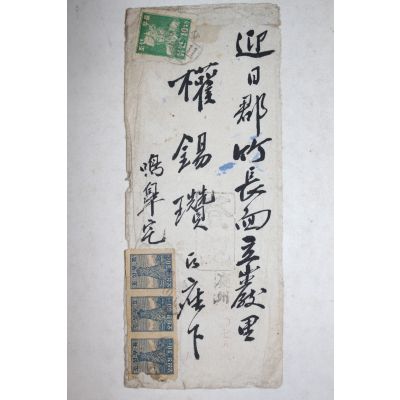 迎日郡竹長面立巖里
權錫瓚氏座下
鳴皐宅